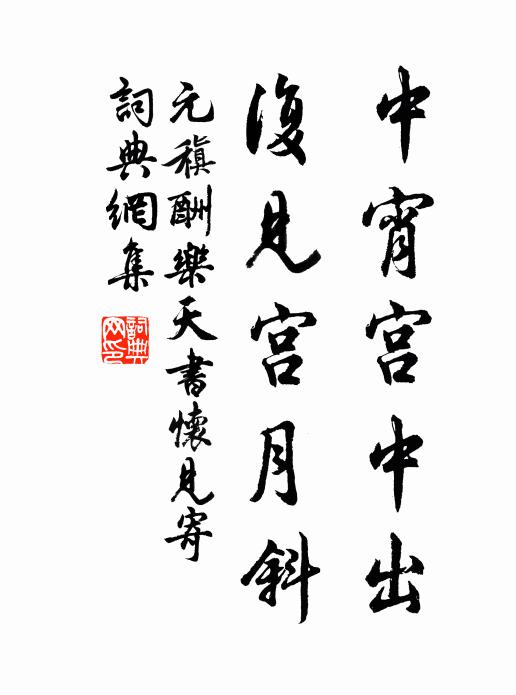 中宵宮中出
復見宮月斜
元稹酬樂天書懷見寄
詞典網集
詞典
网印